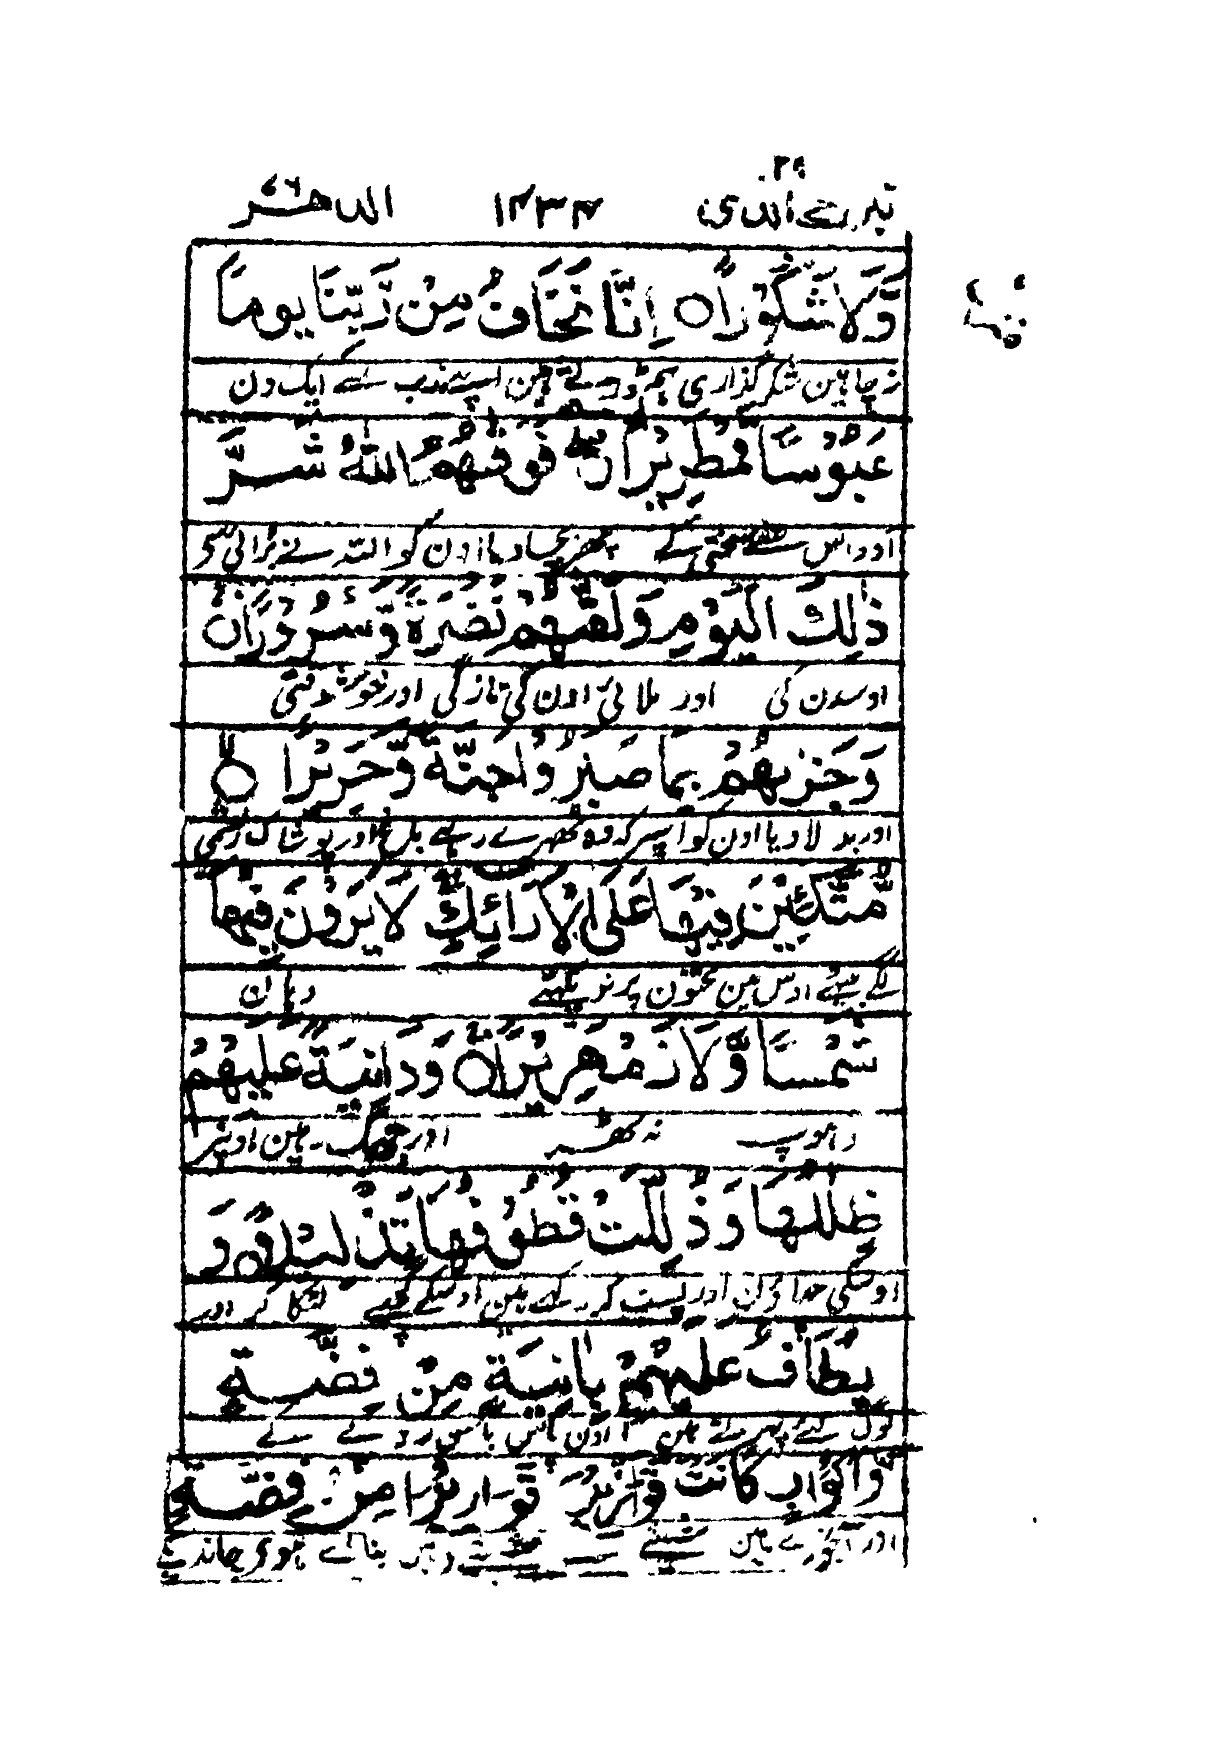 تبرك الذى ٢٩ ١٤٣٤ الدهر ٧٦
وَّلَا شُكُوْرًا ○ اِنَّا نَخَافُ مِنْ رَّبِّنَا يَوْمًا
نہ چاہین شکر گذاری ہم ڈرتے ہین اپنے رب سے ایک دن
عَبُوْسًا قَمْطَرِيْرًا ○ فَوَقٰهُمُ اللّٰهُ شَرَّ
اوداس سے سختی کے پھر بچا دیا اون کو اللہ نے برائی سے
ذٰلِكَ الْيَوْمِ وَلَقّٰهُمْ نَضْرَةً وَّسُرُوْرًا ○
اوسدن کی اور ملائی اون کی تازگی اور خوش وقتی
وَجَزٰىهُمْ بِمَا صَبَرُوْا جَنَّةً وَّحَرِيْرًا ○ لا
اور بدلا دیا اون کو اسپر کہ وہ ٹھہرے رہے باغ اور پوشاک ریشمی
مُّتَّكِـِٕيْنَ فِيْهَا عَلَى الْاَرَآئِكِ لَا يَرَوْنَ فِيْهَا
لگے بیٹھے اوس مین تختون پر نہ دیکھتے وہان
شَمْسًا وَّلَا زَمْهَرِيْرًا ○ وَدَانِيَةً عَلَيْهِمْ
دھوپ نہ ٹھر اور جھک ہین اونپر
ظِلٰلُهَا وَذُلِّلَتْ قُطُوْفُهَا تَذْلِيْلًا ○ وَ
اوسکی چھاؤن اور پست کر رکھے ہین اوسکے گچھے لٹکا کر اور
يُطَافُ عَلَيْهِمْ بِاٰنِيَةٍ مِّنْ فِضَّةٍ
لوگ لئے پھرتے ہین اون پاس باسن روپے کے
وَّاَكْوَابٍ كَانَتْ قَوَارِيْرَا ○ قَوَارِيْرَا مِنْ فِضَّةٍ
اور آبخورے ہین شیشے کے شیشے